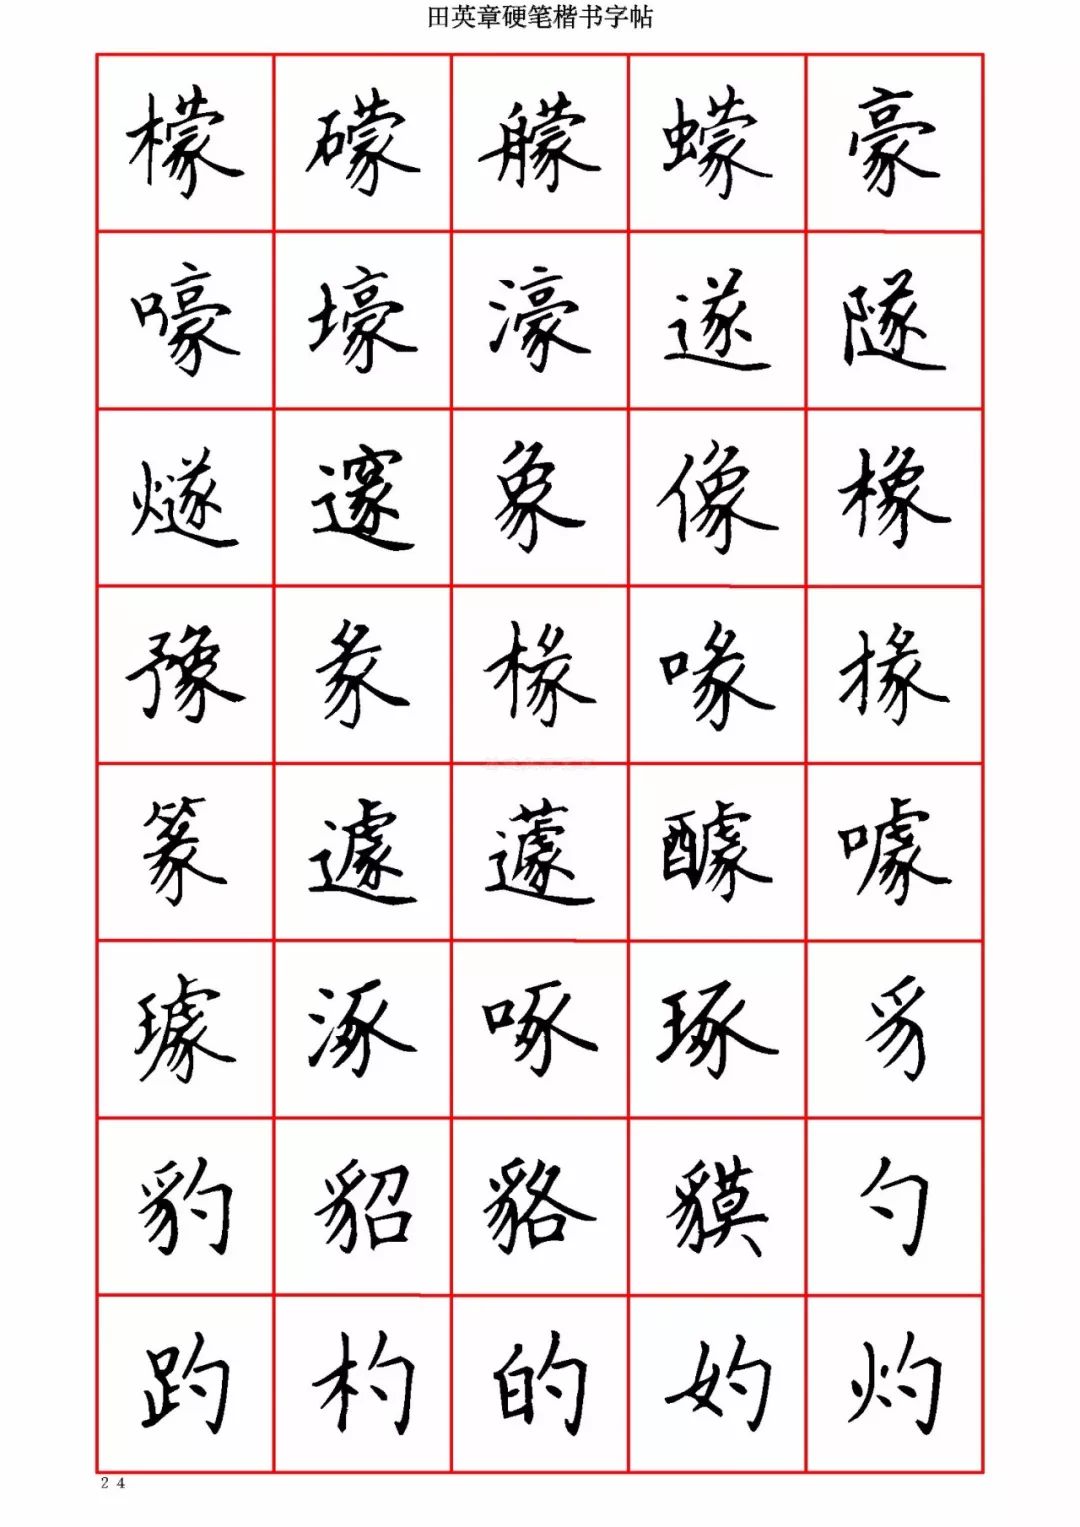 田英章硬笔楷书字帖
檬 礞 艨 蠓 豪
嚎 壕 濠 遂 隧
燧 邃 象 像 橡
豫 彖 椽 喙 掾
篆 遽 蘧 醵 噱
璩 涿 啄 琢 豸
豹 貂 貉 貘 勺
趵 杓 的 妁 灼
24